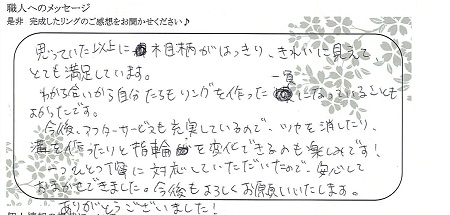 職人へのメッセージ
是非 完成したリングのご感想をお聞かせください♪
思っていた以上に木目柄がはっきり、きれいに見えて
とても満足しています。
わかる合いから自分たちもリングを作った一員になっていることも
よかったです。
今後、アフターサービスも充実しているので、ツヤを消したり、
溝を作ったりと指輪を変化できるのも楽しみです！
一つひとつ丁寧に対応していただいたので、安心して
おまかせできました。今後もよろしくお願いいたします。
ありがとうございました！